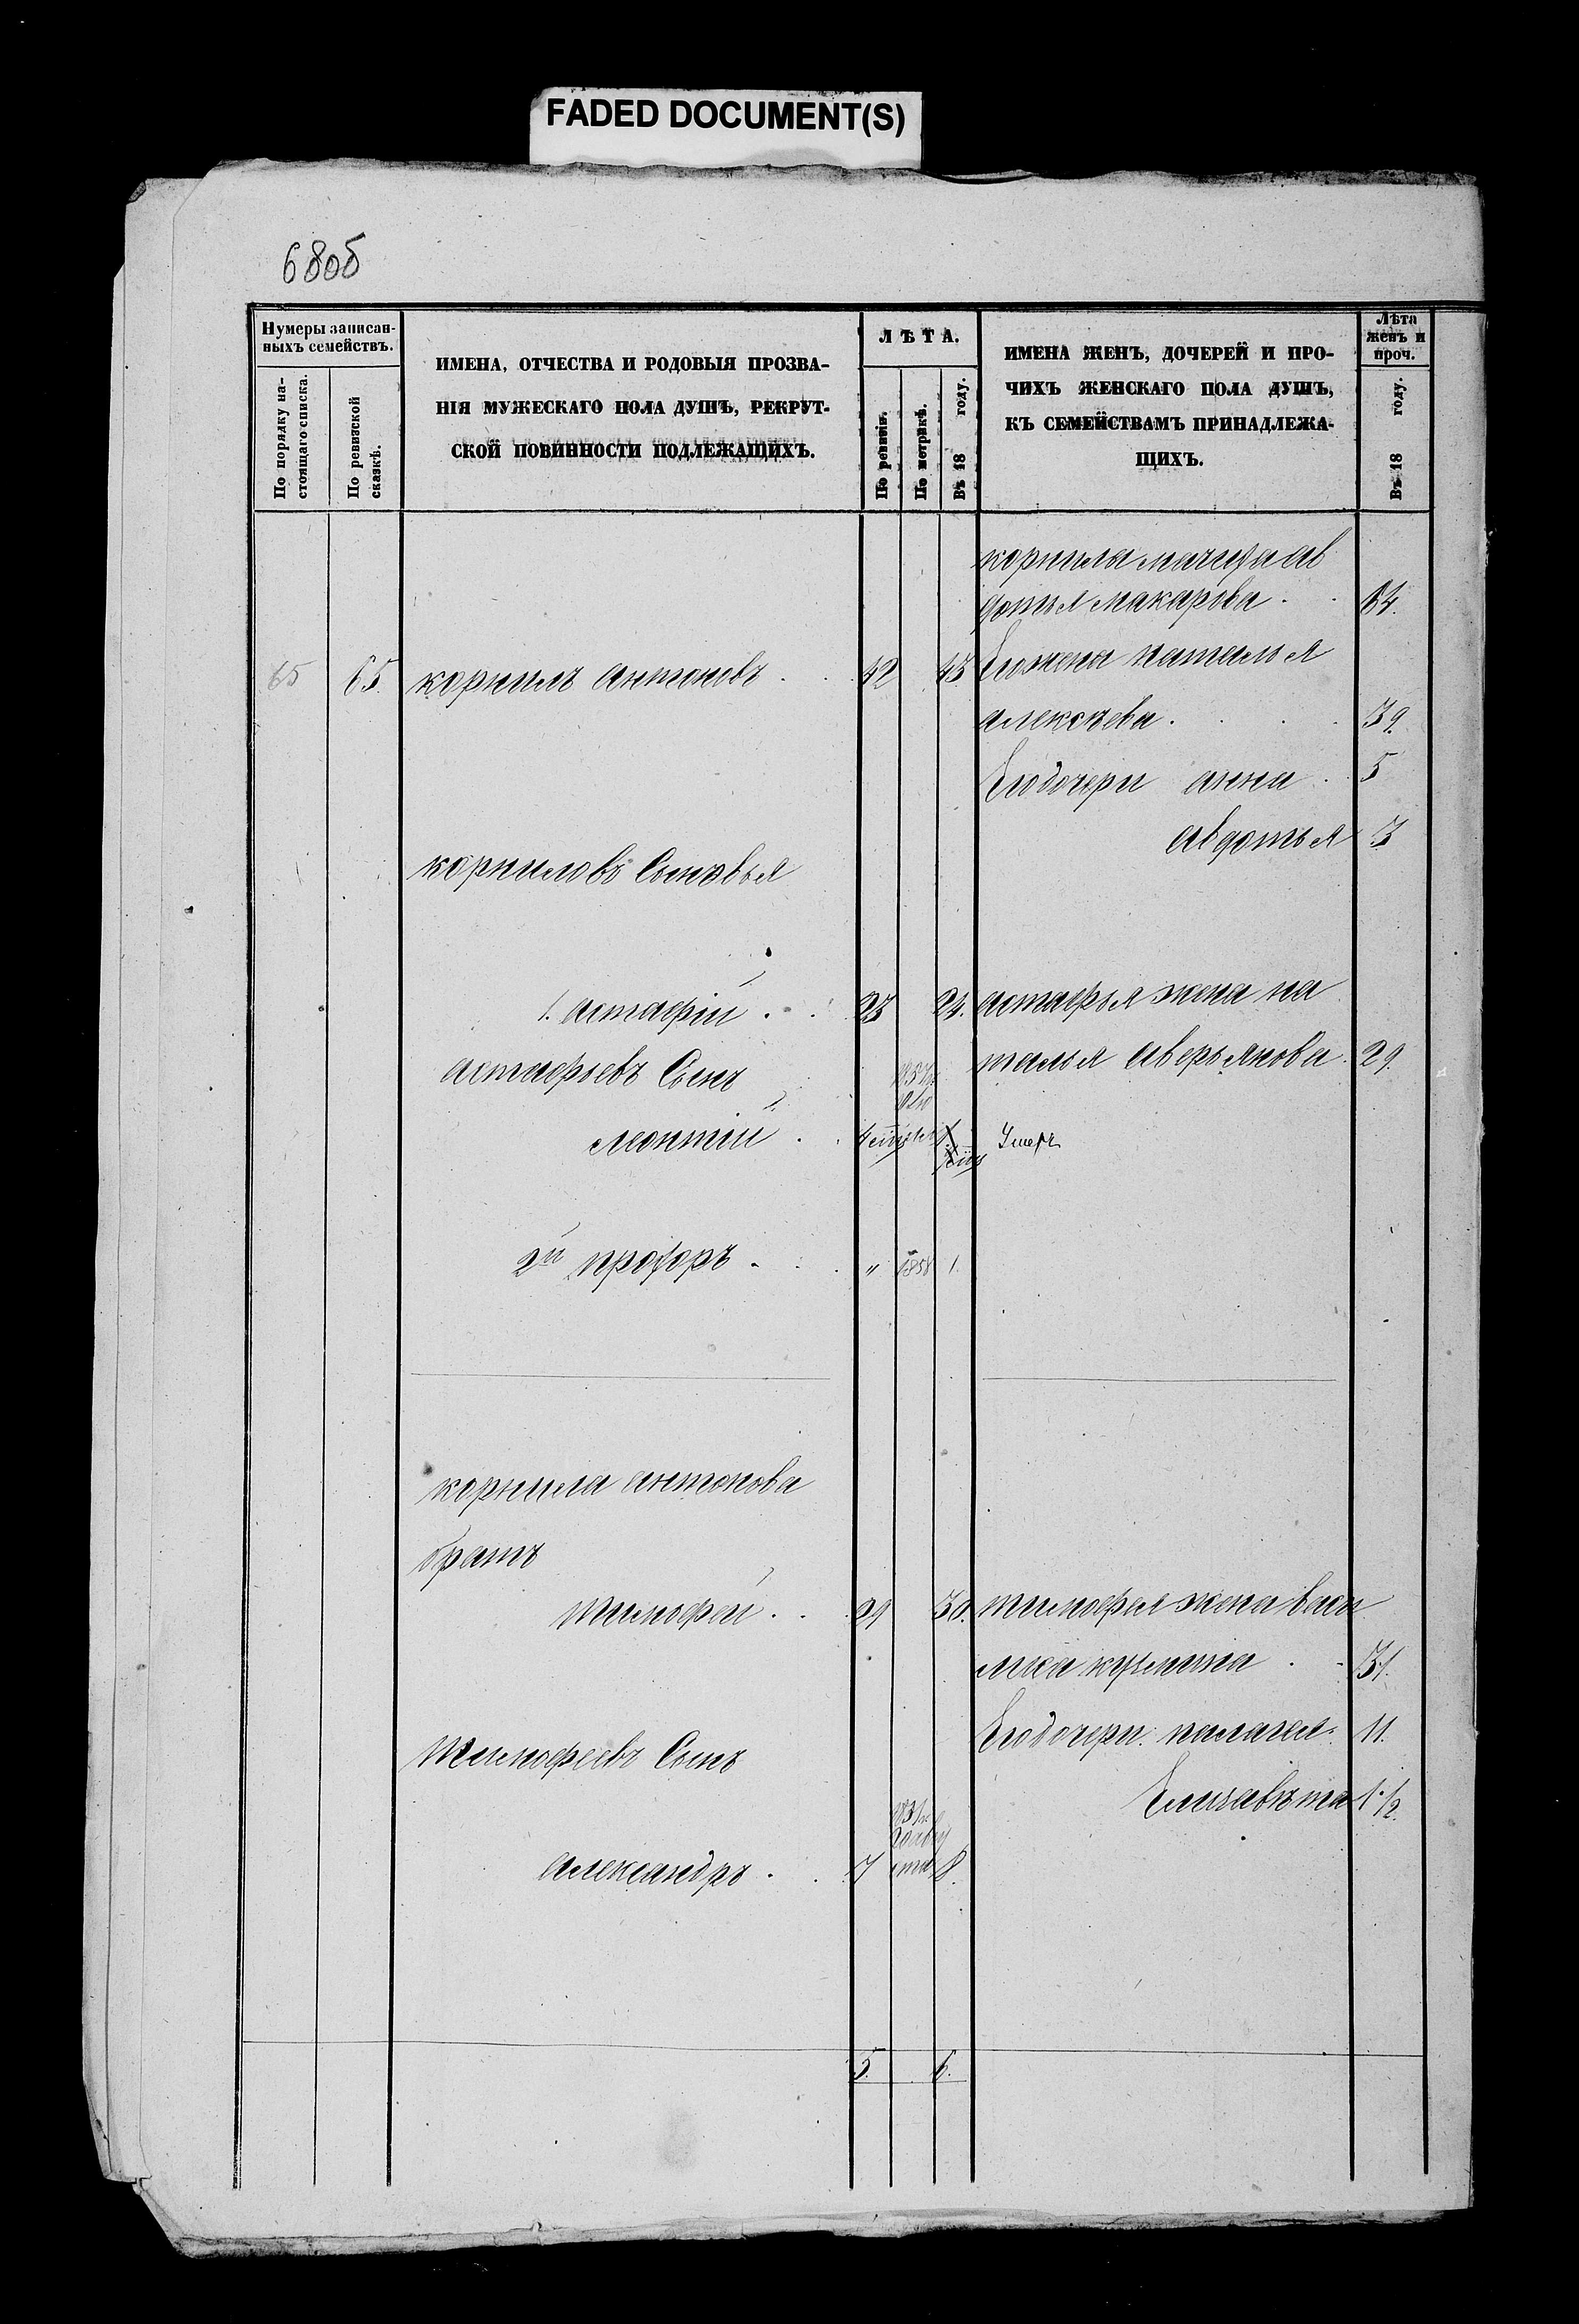 FADED DOCUMENT(S)
68об
Нумеры записан-
ныхъ семействъ.
По порядку на-
стоящаго списка.
По ревизской
сказкѣ.
ИМЕНА, ОТЧЕСТВА И РОДОВЫЯ ПРОЗВА-
НІЯ МУЖЕСКАГО ПОЛА ДУШЪ, РЕКРУТ-
СКОЙ ПОВИННОСТИ ПОДЛЕЖАЩИХЪ.
ЛѢТА.
По ревизіи.
По метрикѣ.
Въ 18 году.
ИМЕНА ЖЕНЪ, ДОЧЕРЕЙ И ПРО-
ЧИХЪ ЖЕНСКАГО ПОЛА ДУШЪ,
КЪ СЕМЕЙСТВАМЪ ПРИНАДЛЕЖА-
ЩИХЪ.
Лѣта
женъ и
проч.
Въ 18 году.
корнилы мачиха ав
дотья макарова 64.
65 65. корнилъ антоновъ 42 43 Его жена наталья
алексѣева 39.
Его дочери анна 5
авдотья 3
корниловы Сыновья
1. астафій 23 24. астафья жена на
талья аверьянова 29.
астафьевъ Сынъ
леонтій Умеръ
2й прохоръ " 1858 1.
корнила антонова
братъ
тимофей 29 30. тимофея жена васи
лиса кузмина 31.
Его дочери: палагея 11.
тимофеевъ Сынъ
Елизавѣта 1 1/2.
александръ 7 8.
5. 6.